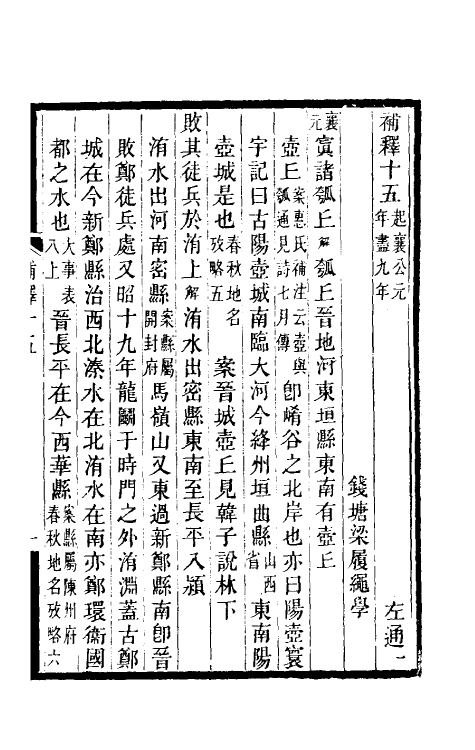 補釋十五起襄公元年盡九年 左通一
錢塘梁履繩學
襄元寘諸瓠丘解瓠丘晉地河東垣縣東南有壺丘
壺丘案惠氏補注云壺與瓠通見詩七月傳卽崤谷之北岸也亦曰陽壺寰
宇記曰古陽壺城南臨大河今絳州垣曲縣山西省東南陽
壺城是也春秋地名攷略五 案晉城壺丘見韓子說林下
敗其徒兵於洧上解洧水出密縣東南至長平入潁
洧水出河南密縣案縣屬開封府馬嶺山又東過新鄭縣南卽晉
敗鄭徒兵處又昭十九年龍鬭于時門之外洧淵蓋古鄭
城在今新鄭縣治西北溱水在北洧水在南亦鄭環衞國
都之水也大事表八上 晉長平在今西華縣案縣屬陳州府春秋地名攷略六
補釋十五 一